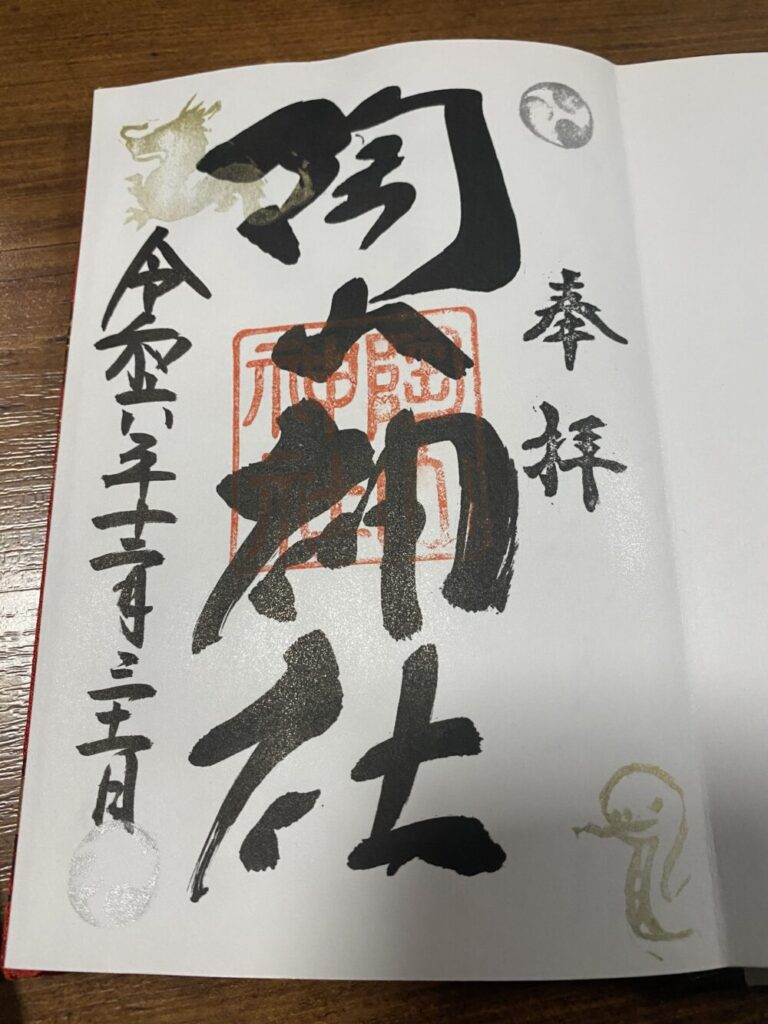 奉拝
陶山神社
陶山
神社
令和六年十二月三十一日